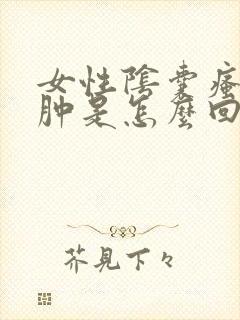 女性陰囊瘙
肿是怎麼回
芥見下々